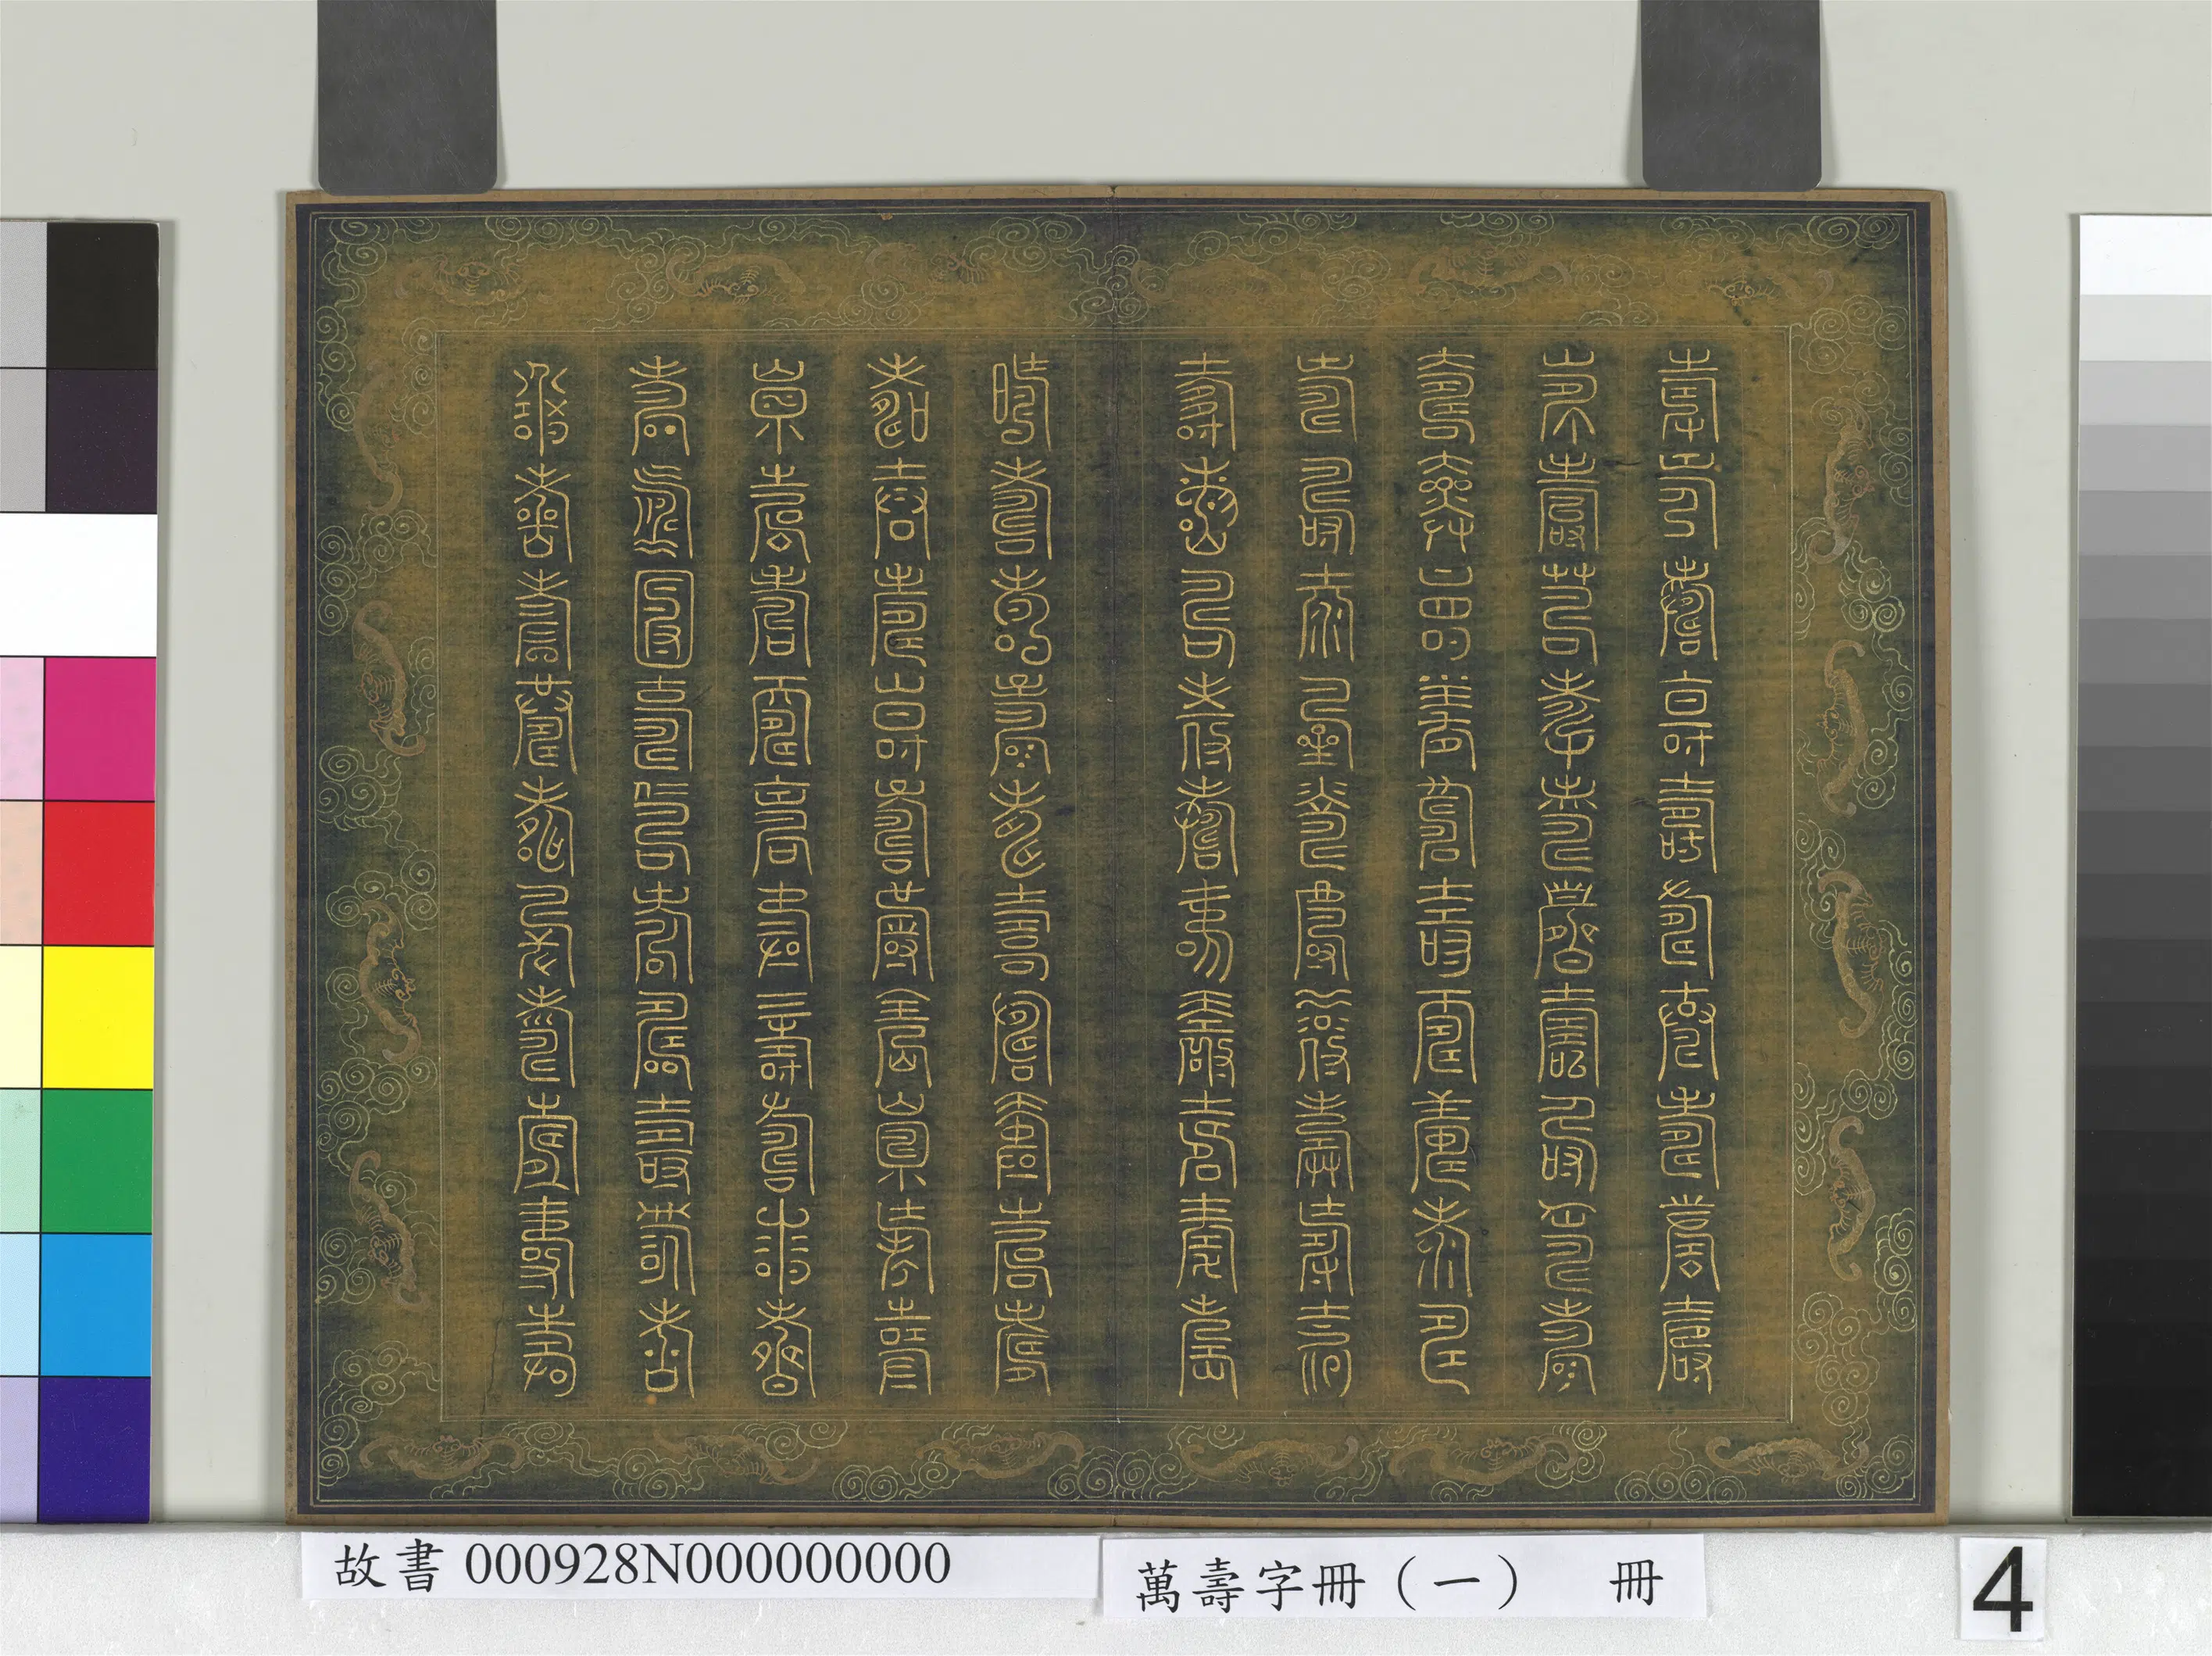 壽壽壽壽壽壽壽壽壽壽
壽壽壽壽壽壽壽壽壽壽
壽壽壽壽壽壽壽壽壽壽
壽壽壽壽壽壽壽壽壽壽
壽壽壽壽壽壽壽壽壽壽
壽壽壽壽壽壽壽壽壽壽
壽壽壽壽壽壽壽壽壽壽
壽壽壽壽壽壽壽壽壽壽
壽壽壽壽壽壽壽壽壽壽
壽壽壽壽壽壽壽壽壽壽
故書 000928N000000000
萬壽字冊（一） 冊
4